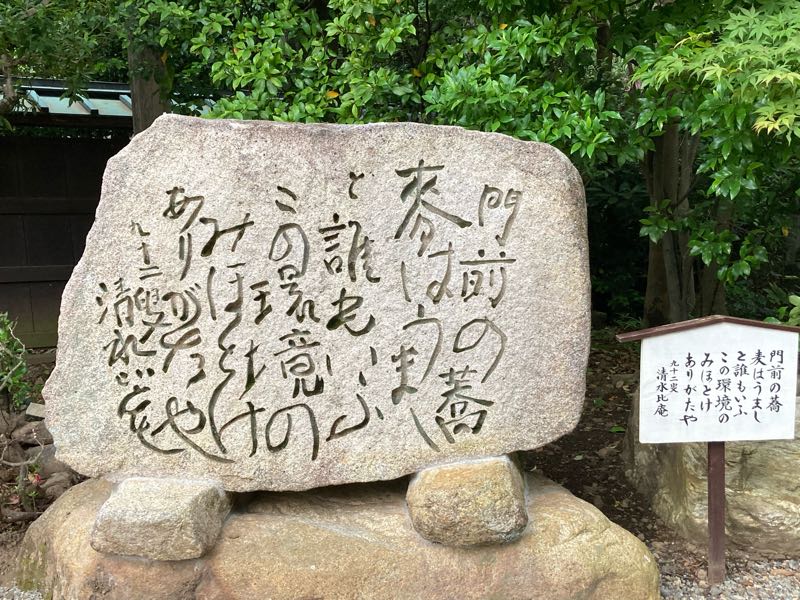 門前の蕎
麦はうまし
と誰もいふ
この環境の
みほとけ
ありがたや
九十二叟
清水比庵
門前の蕎
麦はうまし
と誰もいふ
この環境の
みほとけ
ありがたや
九十二叟
清水比庵